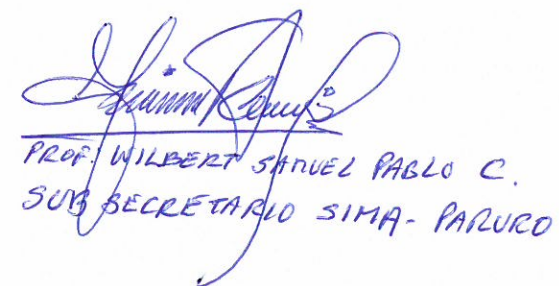 PROF. WILBERT SAMUEL PABLO C.
SUB SECRETARIO SIMA - PARURO